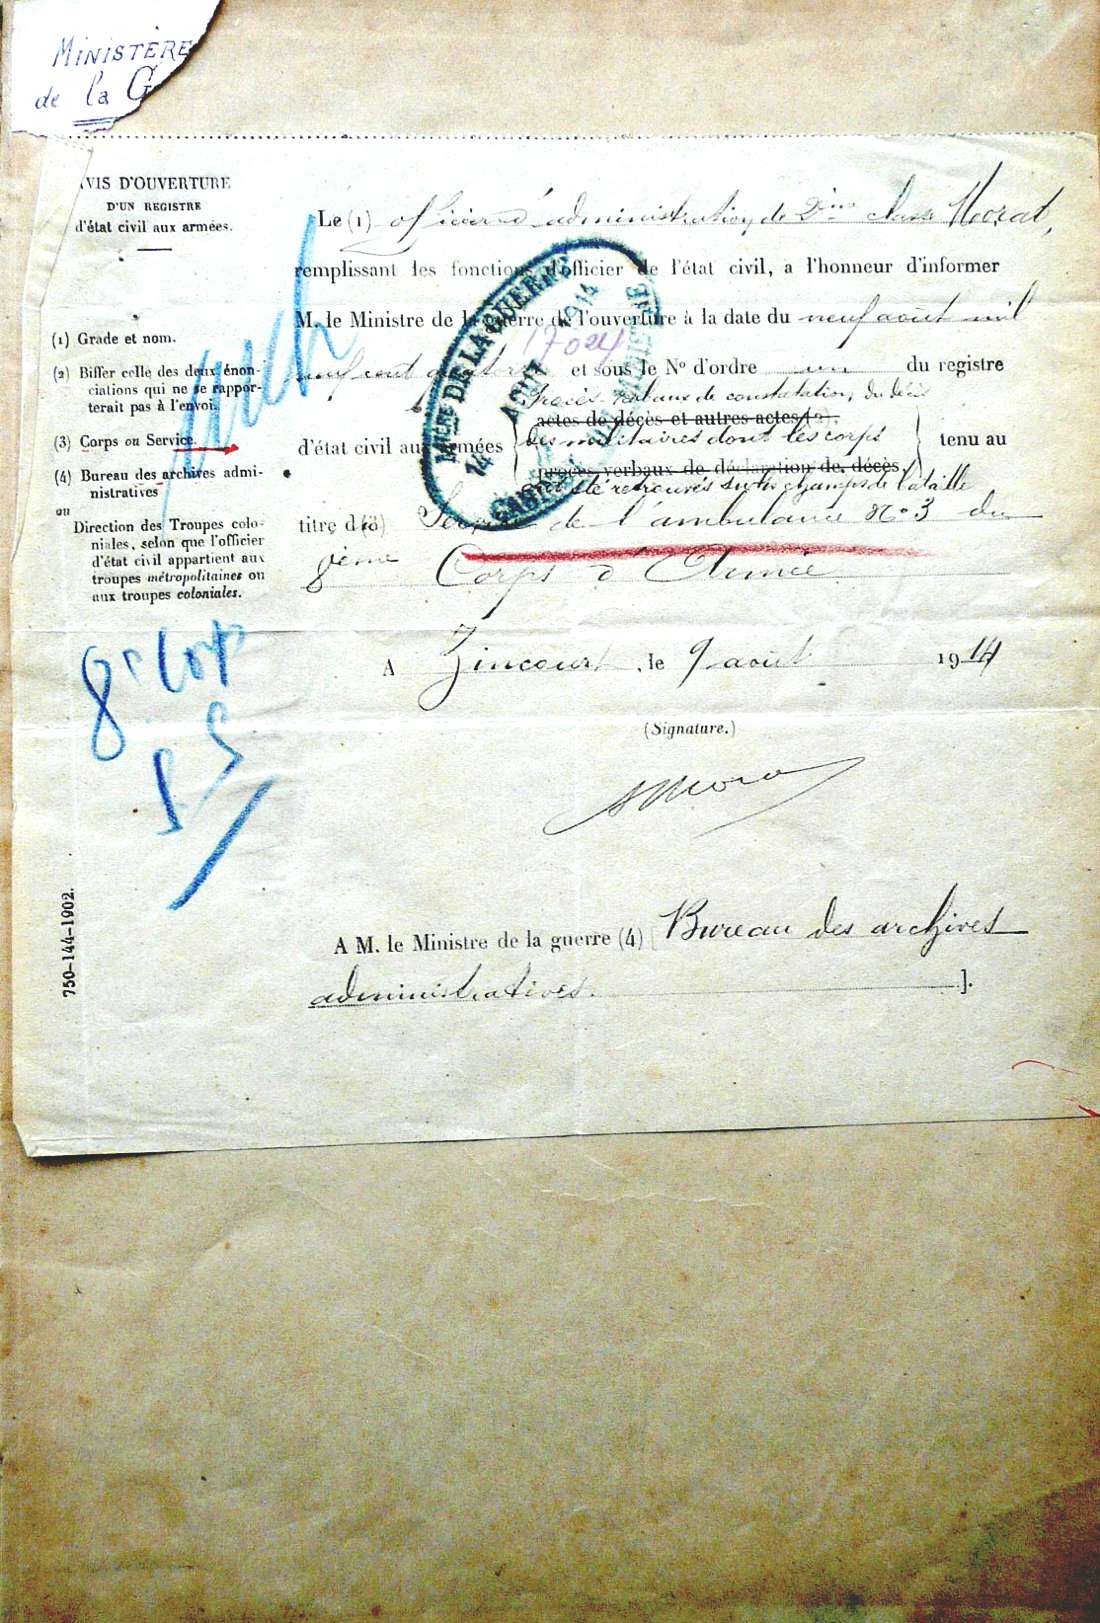 MINISTÈRE
de la G
VIS D'OUVERTURE
D'UN REGISTRE
d'état civil aux armées.
(1) Grade et nom.
(2) Biffer celle des deux énon-
ciations qui ne se rappor-
terait pas à l'envoi.
(3) Corps ou Service.
(4) Bureau des archives admi-
nistratives
ou
Direction des Troupes colo-
niales, selon que l'officier
d'état civil appartient aux
troupes métropolitaines ou
aux troupes coloniales.
8e Corp
750-144-1902.
Le (1) officier d'administration de 2ème classe Morat,
remplissant les fonctions d'officier de l'état civil, a l'honneur d'informer
M. le Ministre de la guerre de l'ouverture à la date du neuf août mil
neuf cent quatorze et sous le No d'ordre un du registre
procès verbaux de constatation du décès
actes de décès et autres actes (2).
d'état civil aux armées des militaires dont les corps tenu au
procès-verbaux de déclaration de décès
ont été retrouvés sur les champs de bataille
titre d (3) Service de l'ambulance No 3 du
8ème Corps d'Armée
MINre DE LA GUERRE
14 AOUT 1914
A Zincourt, le 9 août 1914
(Signature.)
A M. le Ministre de la guerre (4) [Bureau des archives
administratives.].